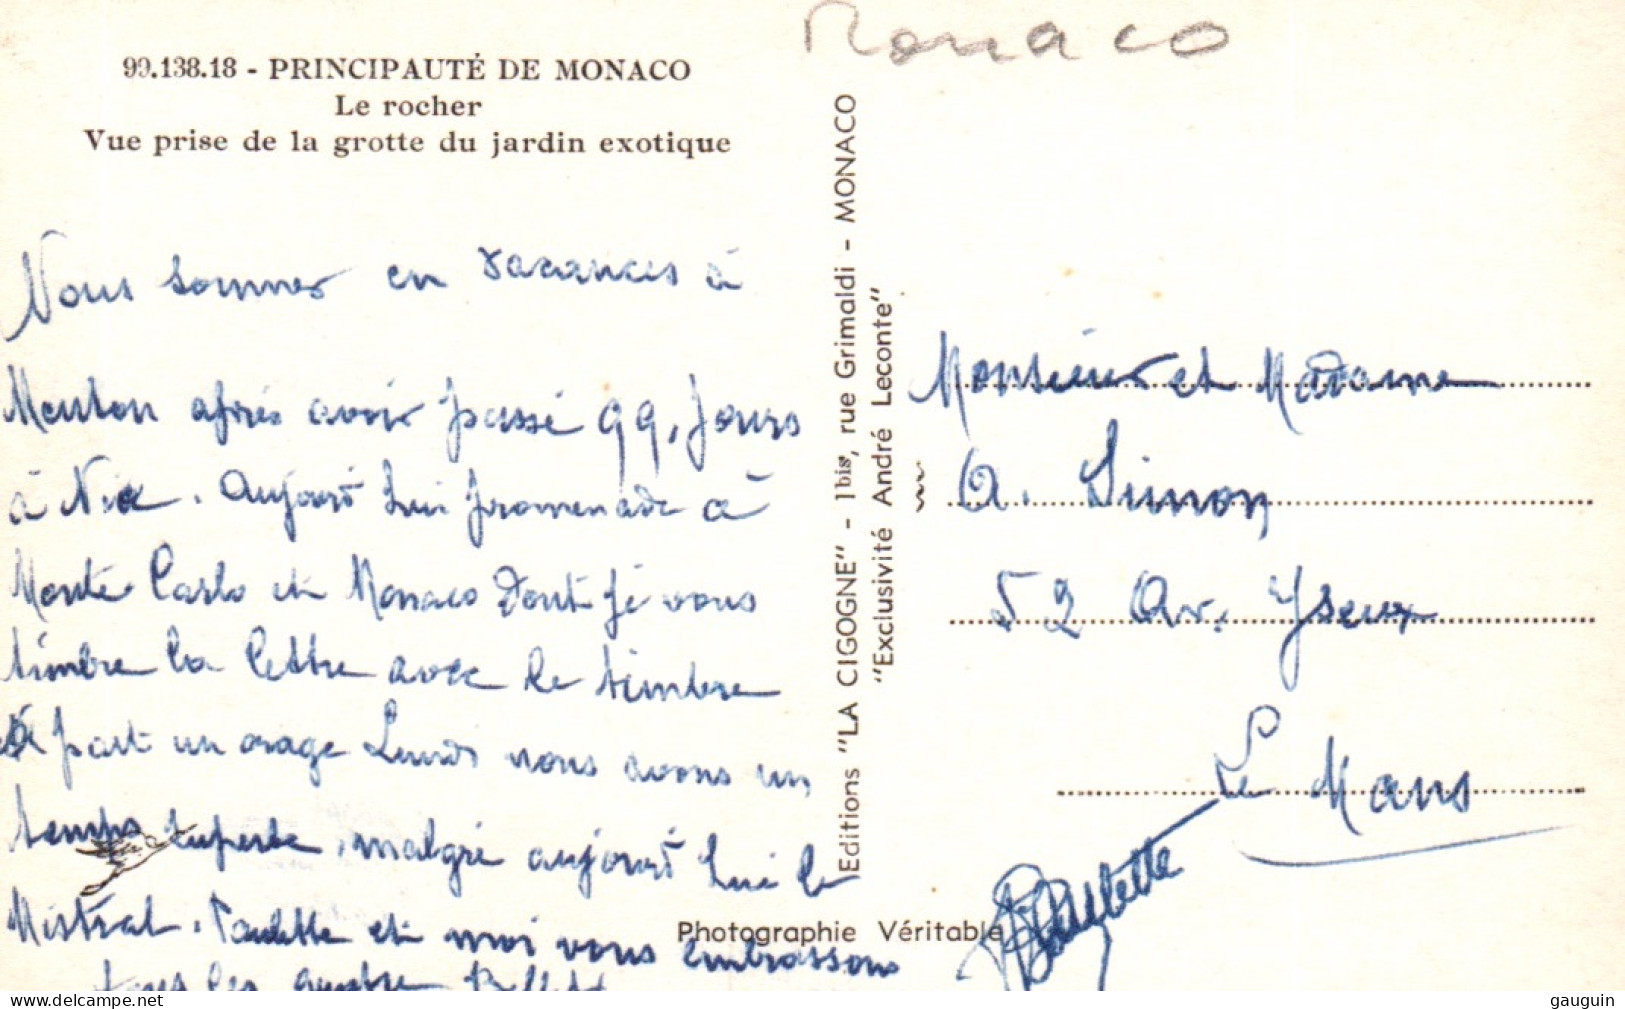 Monaco
99.138.18 - PRINCIPAUTÉ DE MONACO
Le rocher
Vue prise de la grotte du jardin exotique
Nous sommes en vacances à
Menton après avoir passé 99, jours
à Nice. Aujourd hui promenade à
Monte Carlo et Monaco dont je vous
timbre la lettre avec le timbre
à part un orage Lundi nous avons un
temps superbe, malgré aujourd hui le
Mistral. Paulette et moi vous embrassons
tous les quatre
Editions "LA CIGOGNE" - 1bis, rue Grimaldi - MONACO
"Exclusivité André Leconte"
Photographie Véritable
Monsieur et Madame
A. Simon
52 Av. Yseux
Le Mans
Paulette
delcampe.net
gauguin